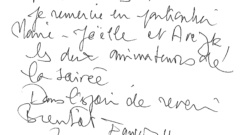 Je remercie en particulier
Marie-Joëlle et
les deux animateurs de
la soirée
Dans l'espoir de revenir
Bientôt